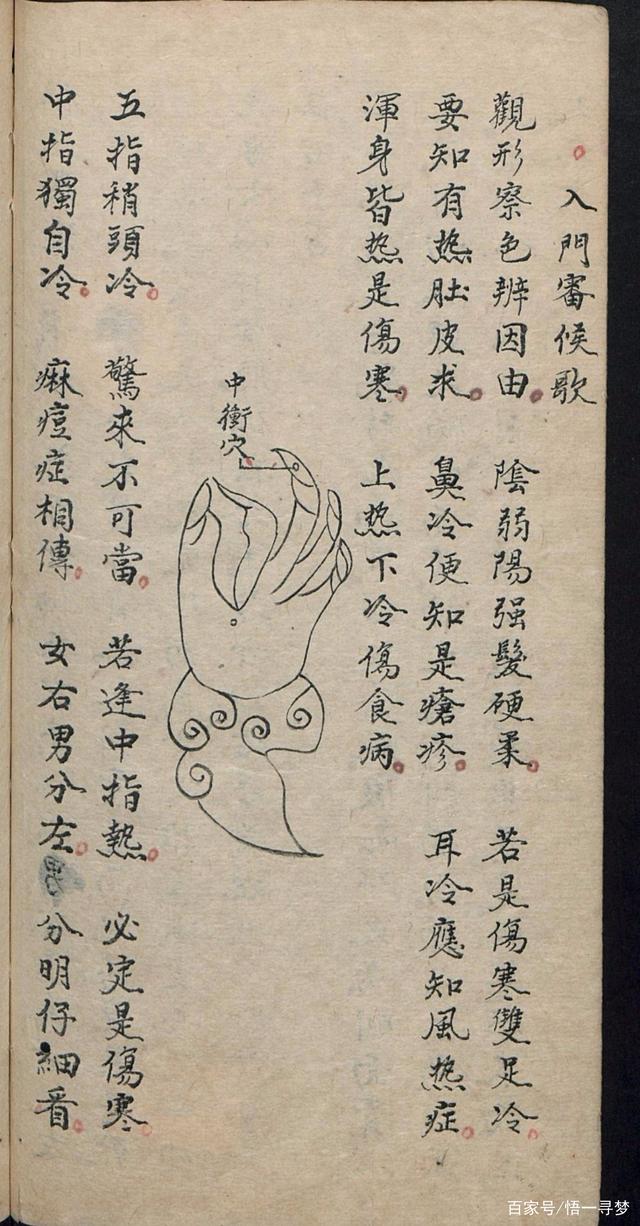 入門審候歌
觀形察色辨因由 陰弱陽强髮硬柔 若是傷寒雙足冷
要知有热肚皮求 鼻冷便知是瘡疹 耳冷應知風热症
渾身皆热是傷寒 上热下冷傷食病
中衝穴
五指稍頭冷 驚來不可當 若逢中指熱 必定是傷寒
中指獨自冷 麻痘症相傳 女右男分左 分明仔細看
百家号/悟一寻梦